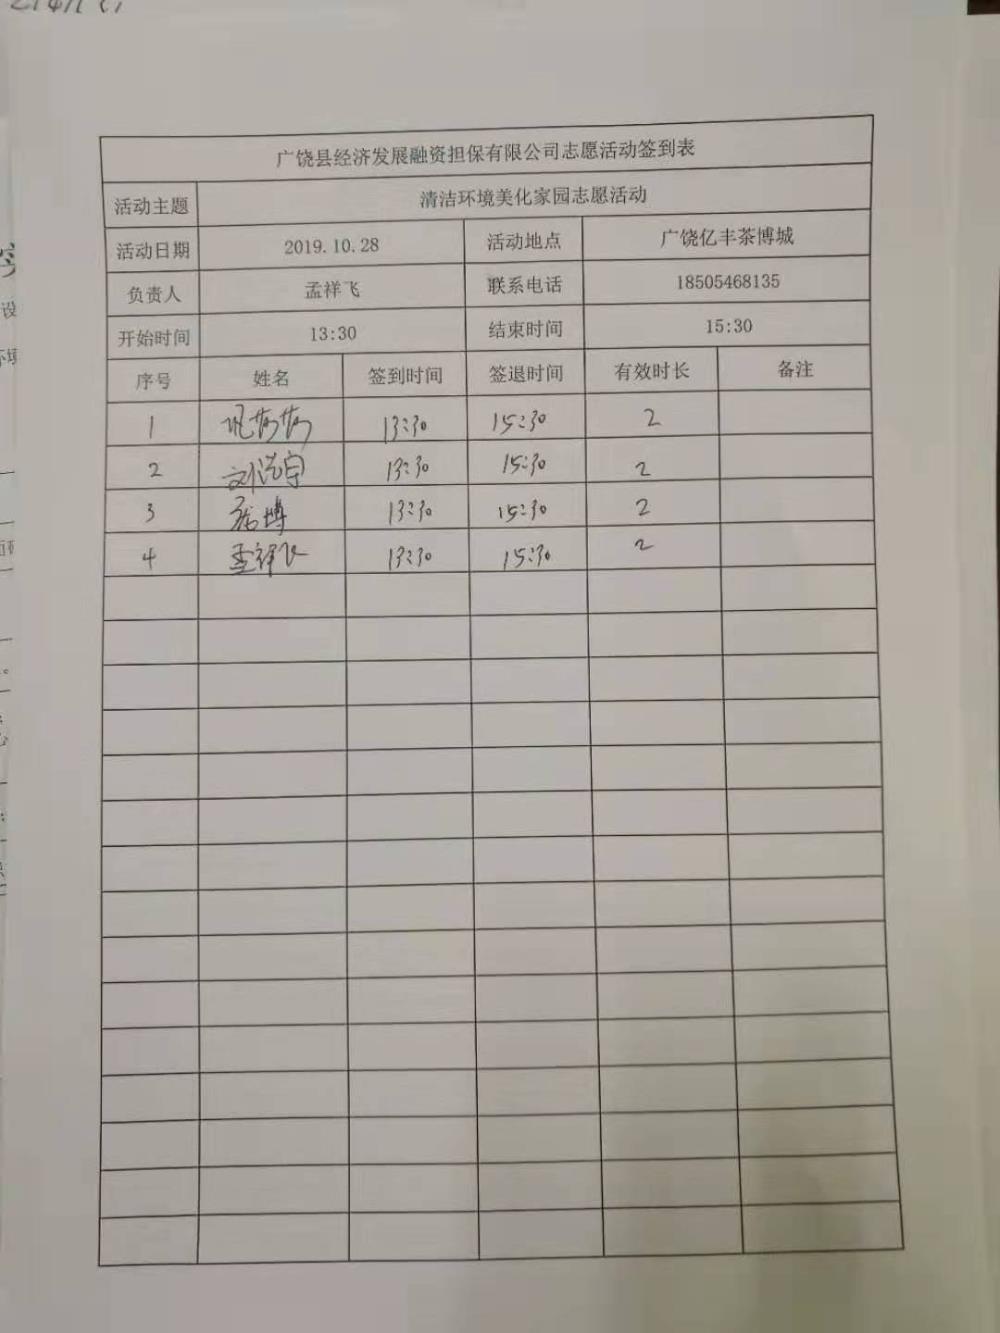 广饶县经济发展融资担保有限公司志愿活动签到表
活动主题 清洁环境美化家园志愿活动
活动日期 2019.10.28 活动地点 广饶亿丰茶博城
负责人 孟祥飞 联系电话 18505468135
开始时间 13:30 结束时间 15:30
序号 姓名 签到时间 签退时间 有效时长 备注
1 13:30 15:30 2
2 刘浩宇 13:30 15:30 2
3 13:30 15:30 2
4 孟祥飞 13:30 15:30 2